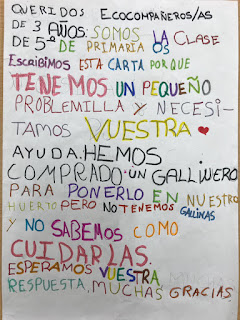 QUERIDOS ECOCOMPAÑEROS/AS
DE 3 AÑOS. SOMOS LA CLASE
DE 5º DE PRIMARIA OS
ESCRIBIMOS ESTA CARTA PORQUE
TENEMOS UN PEQUEÑO
PROBLEMILLA Y NECESI-
TAMOS VUESTRA
AYUDA. HEMOS
COMPRADO UN GALLINERO
PARA PONERLO EN NUESTRO
HUERTO PERO NO TENEMOS GALLINAS
Y NO SABEMOS COMO
CUIDARLAS.
ESPERAMOS VUESTRA
RESPUESTA, MUCHAS GRACIAS.